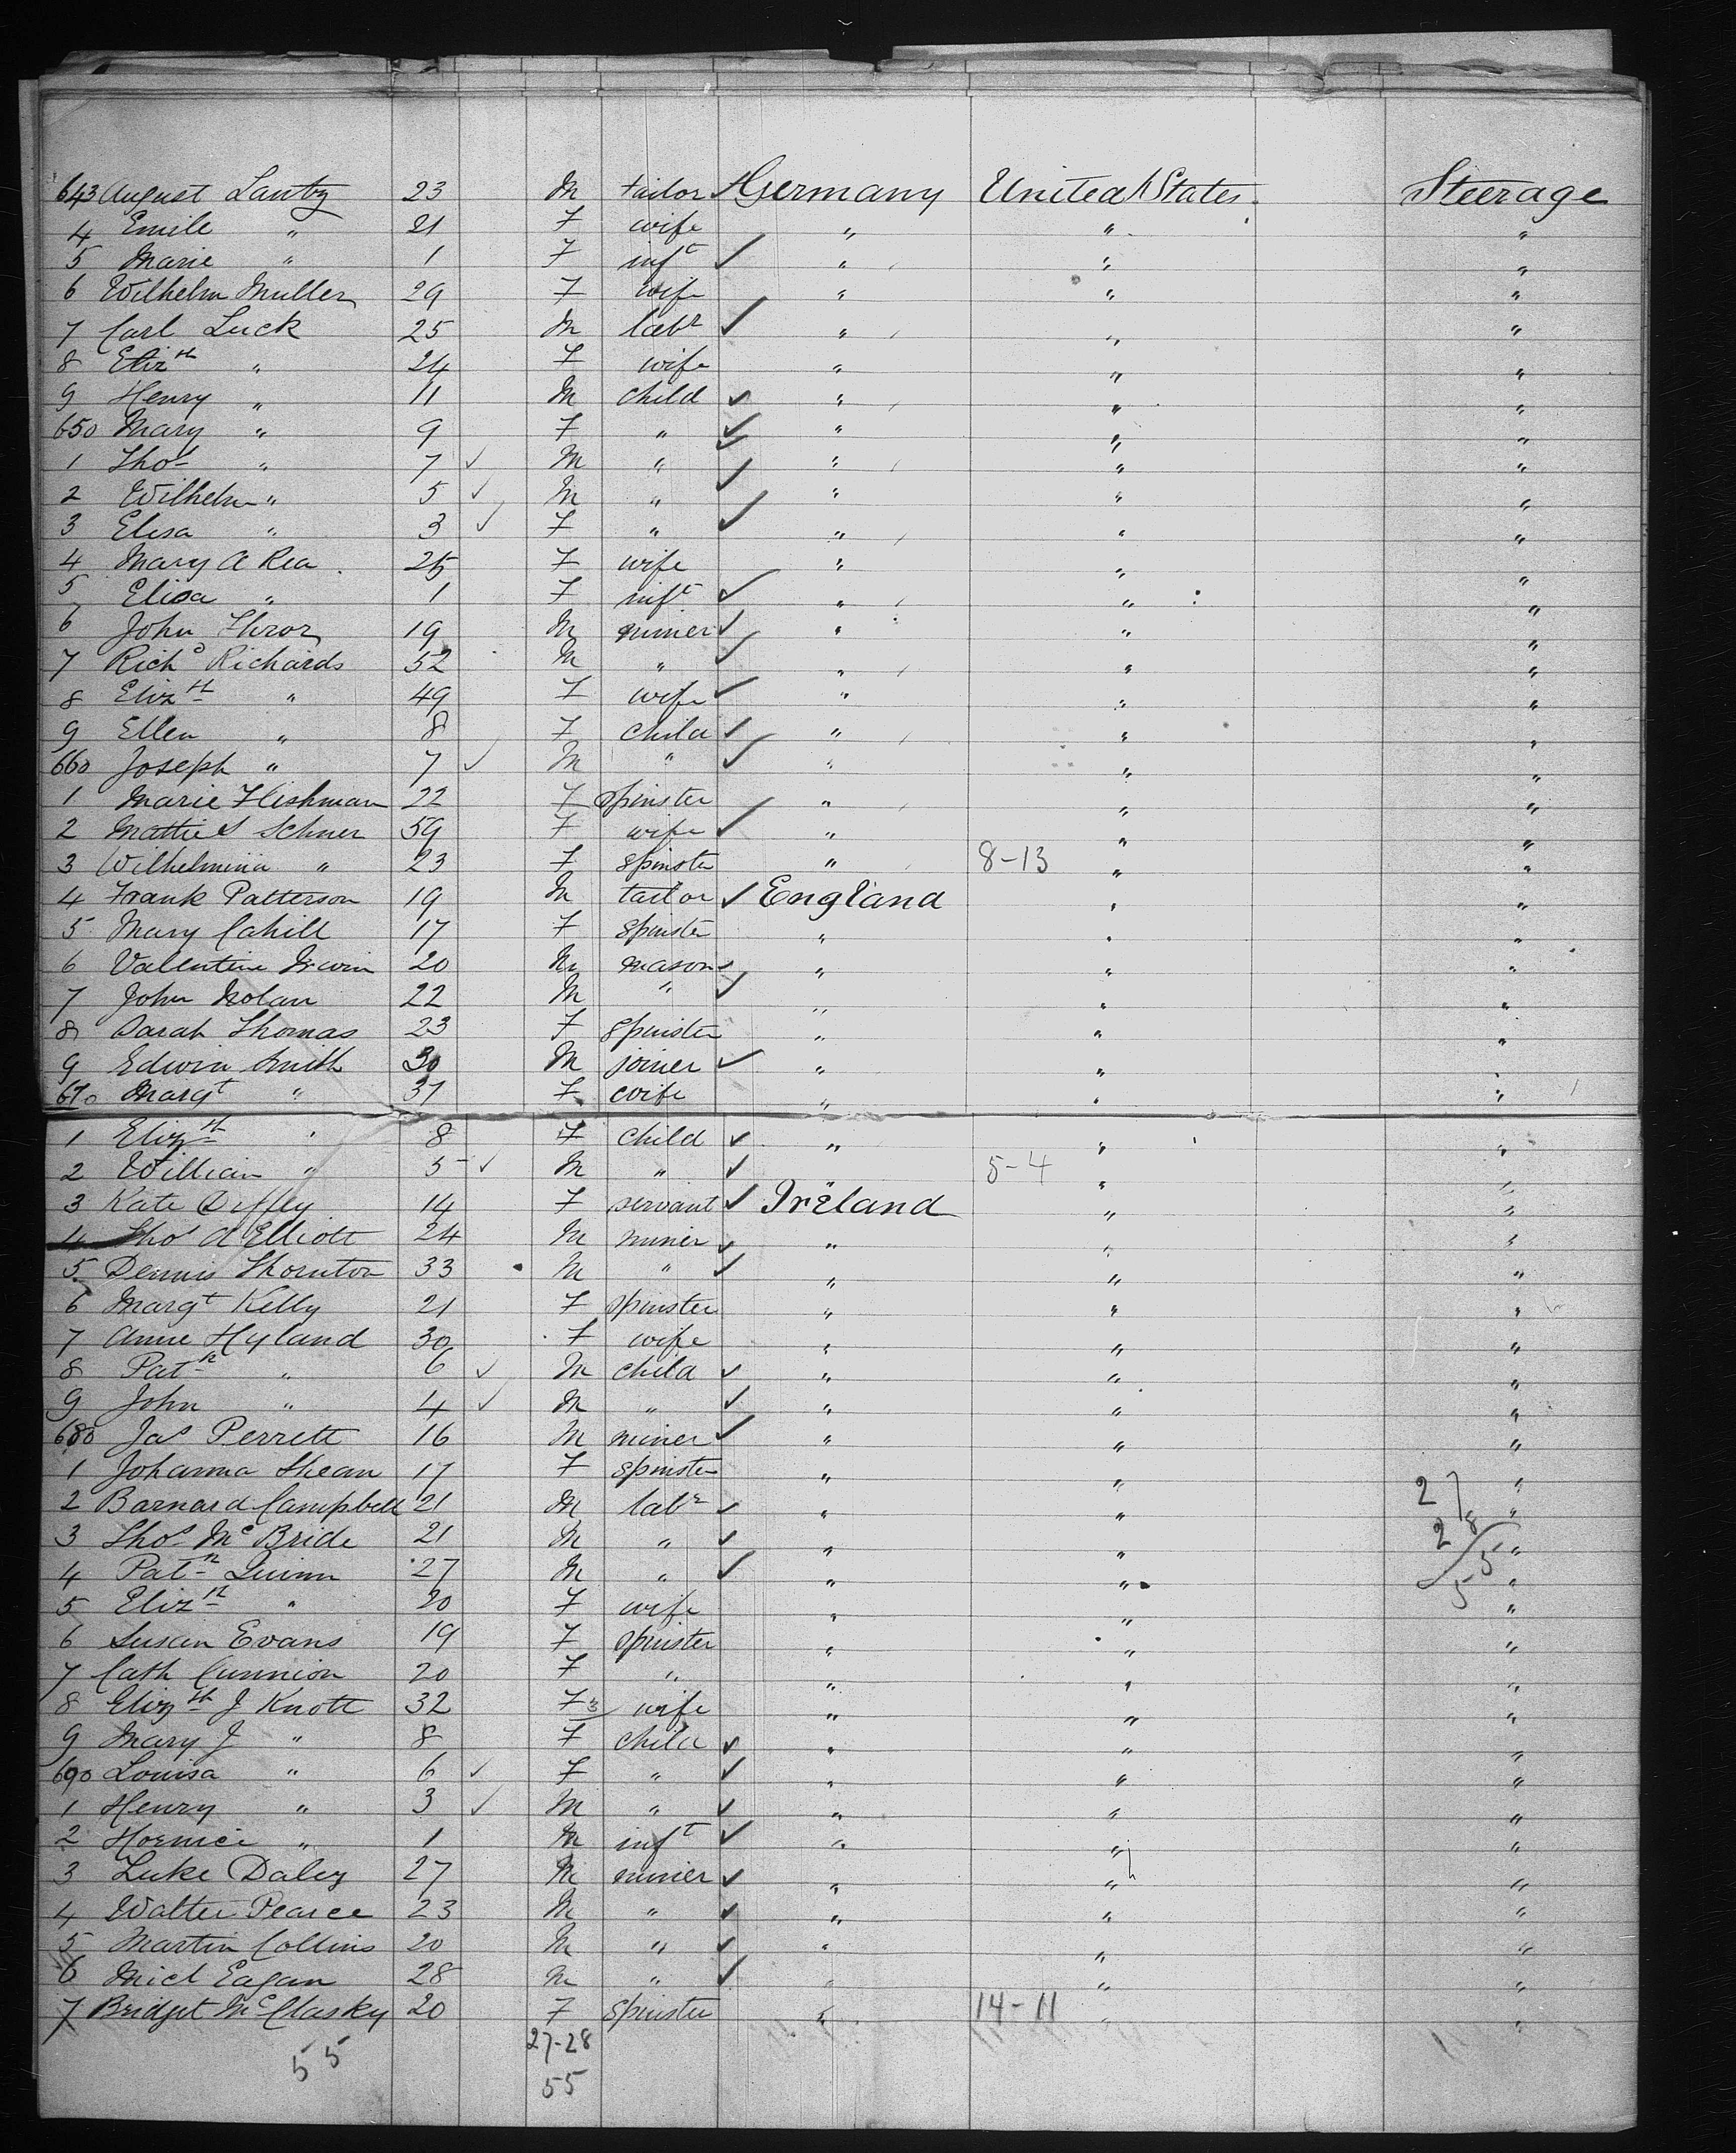 643 August Lantz 23 M tailor Germany United States Steerage
4 Emile " 21 F wife " " "
5 Marie " 1 F inft " " "
6 Wilhelm Muller 29 F wife " " "
7 Carl Luck 25 M labr " " "
8 Elizth " 24 F wife " " "
9 Henry " 11 M child " " "
650 Mary " 9 F " " " "
1 Thos " 7 M " " " "
2 Wilhelm " 5 M " " " "
3 Elisa " 3 F " " " "
4 Mary A Rea 25 F wife " " "
5 Elisa " 1 F inft " " "
6 John 19 M miner " " "
7 Richd Richards 52 M " " " "
8 Elizth " 49 F wife " " "
9 Ellen " 8 F child " " "
660 Joseph " 7 M " " " "
1 Marie Flishman 22 F spinster " " "
2 Schner 59 F wife " " "
3 Wilhelmina " 23 F spinster " 8-13 " "
4 Frank Patterson 19 M tailor England " "
5 Mary Cahill 17 F spinster " " "
6 Valentine Irwin 20 M mason " " "
7 John Nolan 22 M " " " "
8 Sarah Thomas 23 F spinster " " "
9 Edwin Smith 30 M joiner " " "
670 Margt " 37 F wife " " "
1 Elizth " 8 F child " " "
2 William " 5 M " " 5-4 " "
3 Kate Diffley 14 F servant Ireland " "
4 Thos A Elliott 24 M miner " " "
5 Dennis Thornton 33 M " " " "
6 Margt Kelly 21 F spinster " " "
7 Anne Hyland 30 F wife " " "
8 Patk " 6 M child " " "
9 John " 4 M " " " "
680 Jas Perrett 16 M miner " " "
1 Johanna Shean 17 F spinster " " "
2 Barnard Campbell 21 M labr " " 27 "
3 Thos McBride 21 M " " " 28 "
4 Patk Quinn 27 M " " " 55 "
5 Elizth " 20 F wife " " "
6 Susan Evans 19 F spinster " " "
7 Cath Cunnion 20 F " " " "
8 Elizth J Knott 32 F 3 wife " " "
9 Mary J " 8 F child " " "
690 Louisa " 6 F " " " "
1 Henry " 3 M " " " "
2 " 1 M inft " " "
3 Luke Daley 27 M miner " " "
4 Walter Pearce 23 M " " " "
5 Martin Collins 20 M " " " "
6 Micl Eagan 28 M " " " "
7 Bridget McClasky 20 F spinster " 14-11 " "
27-28
55 55